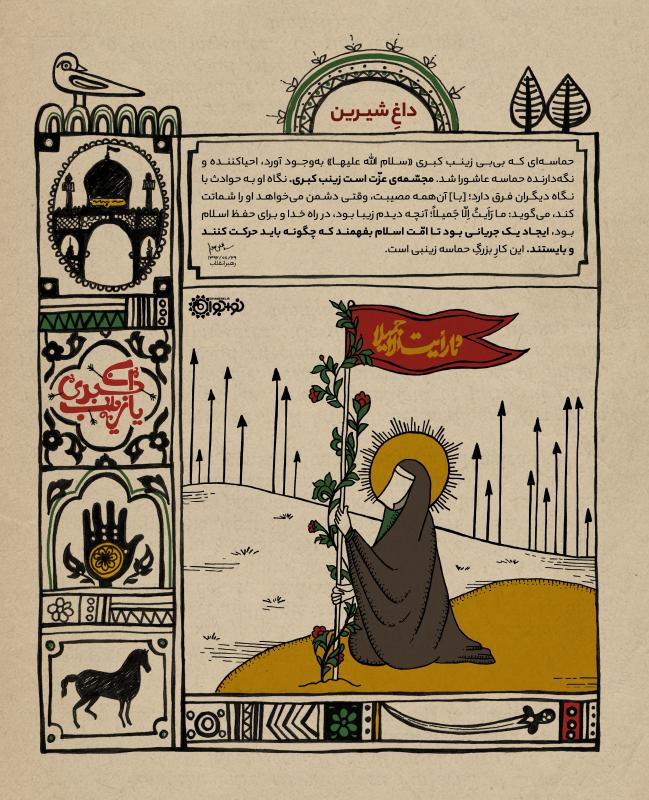 داغِ شیرین
حماسه‌ای که بی‌بی زینب کبری «سلام الله علیها» به‌وجود آورد، احیاکننده و
نگه‌دارنده حماسه عاشورا شد. مجسّمه‌ی عزّت است زینب کبری. نگاه او به حوادث با
نگاه دیگران فرق دارد؛ [با] آن‌همه مصیبت، وقتی دشمن می‌خواهد او را شماتت
کند، می‌گوید: ما رَاَیتُ اِلّا جَمیلاً؛ آنچه دیدم زیبا بود، در راه خدا و برای حفظ اسلام
بود، ایجاد یک جریانی بود تا امّت اسلام بفهمند که چگونه باید حرکت کنند
و بایستند. این کارِ بزرگِ حماسه زینبی است.
رهبر انقلاب
نوجوان
ما رأیت الا جمیلا
یا زینب کبری